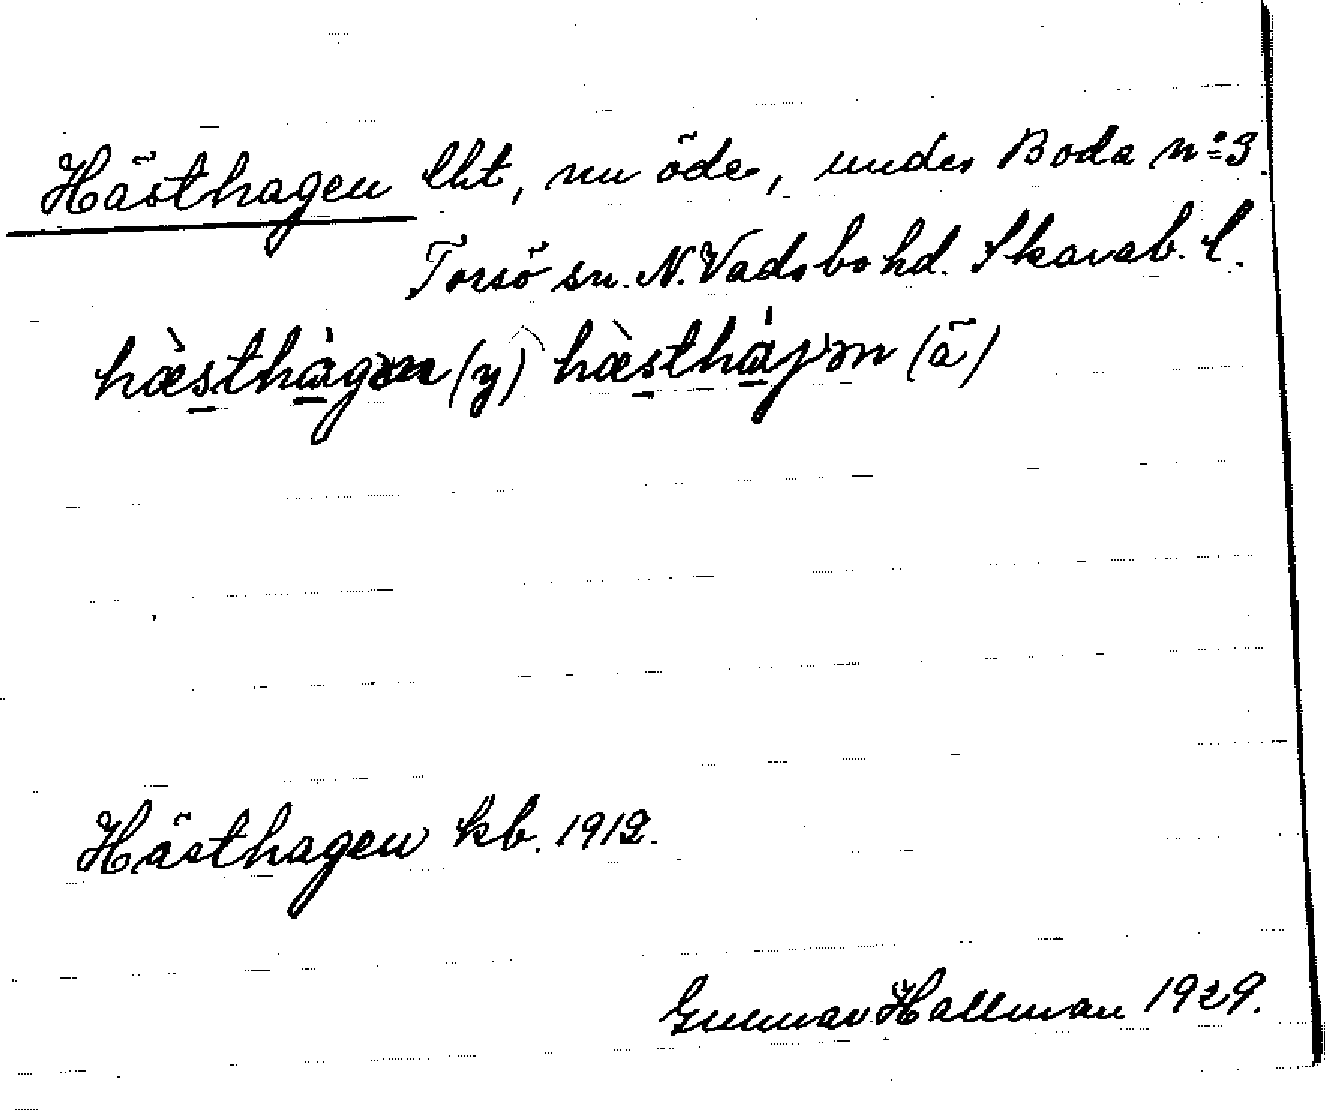 Hästhagen lht, nu öde, under Boda nº 3
Torsö sn. N. Vadsbo hd. Skarab. l.
hæ̀sthàgən (y) hæ̀sthàjən (ä)
Hästhagen kb. 1912.
Gunnar Hallman 1929.